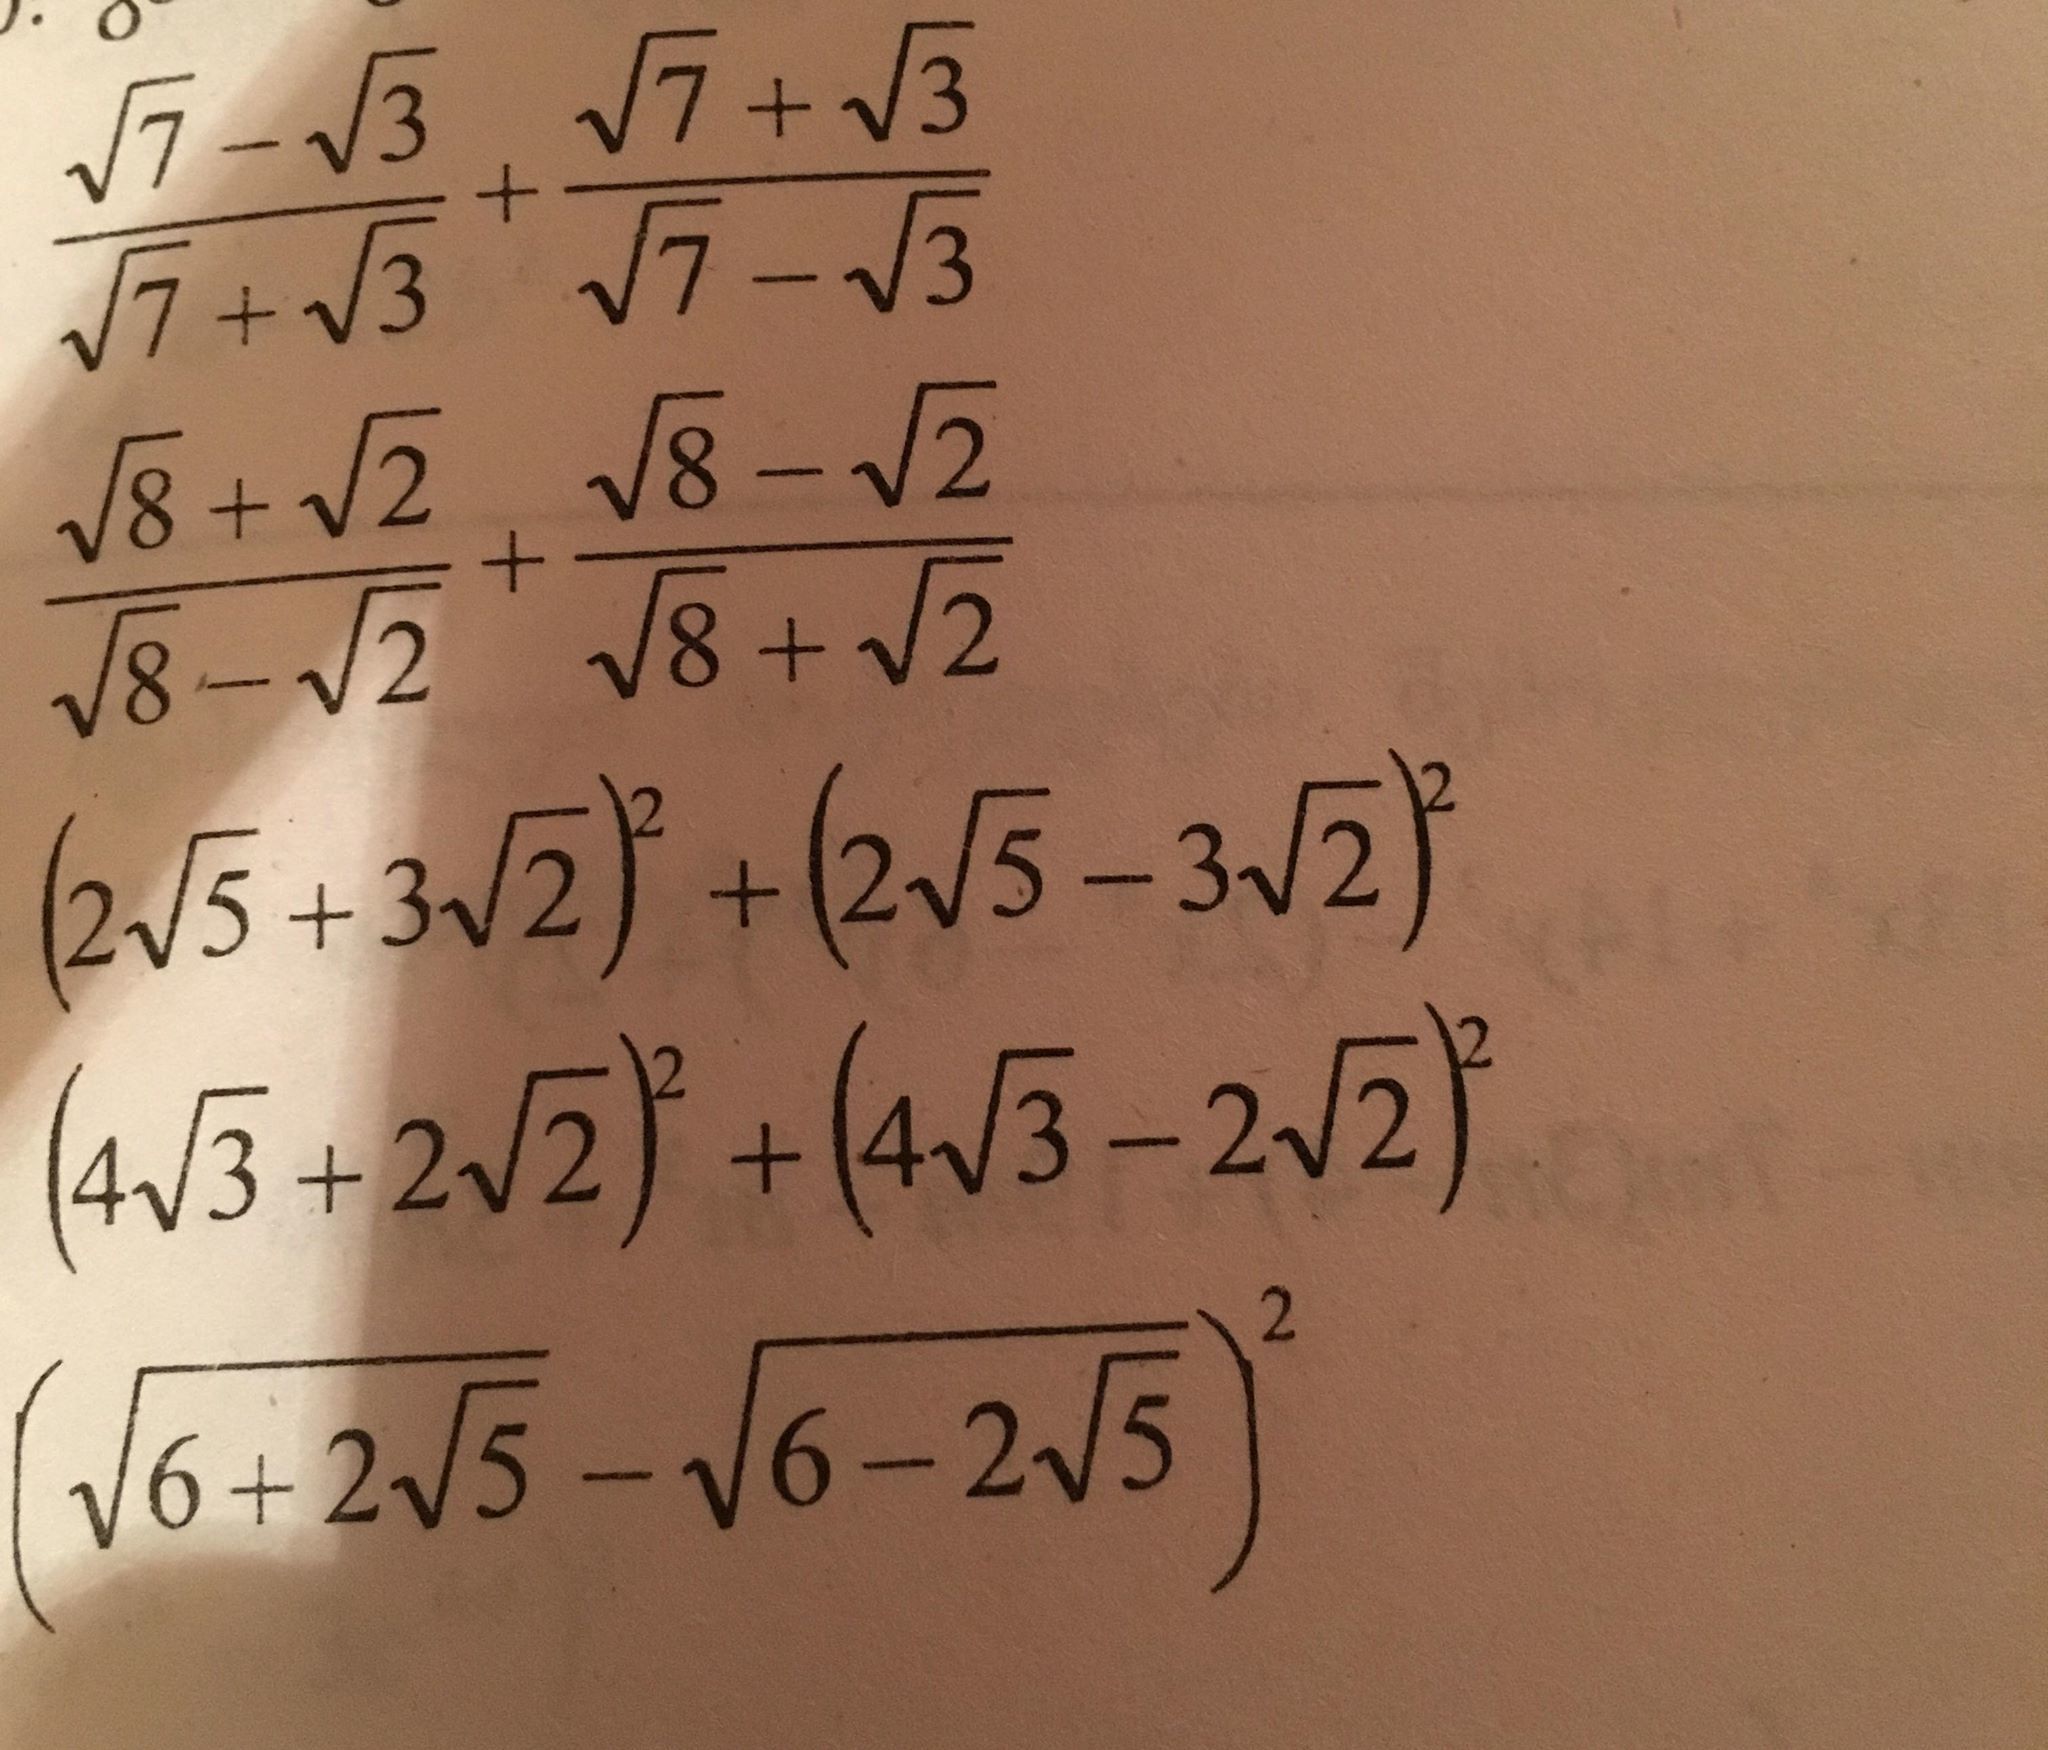 (√7 − √3)/(√7 + √3) + (√7 + √3)/(√7 − √3)
(√8 + √2)/(√8 − √2) + (√8 − √2)/(√8 + √2)
(2√5 + 3√2)² + (2√5 − 3√2)²
(4√3 + 2√2)² + (4√3 − 2√2)²
(√(6 + 2√5) − √(6 − 2√5))²